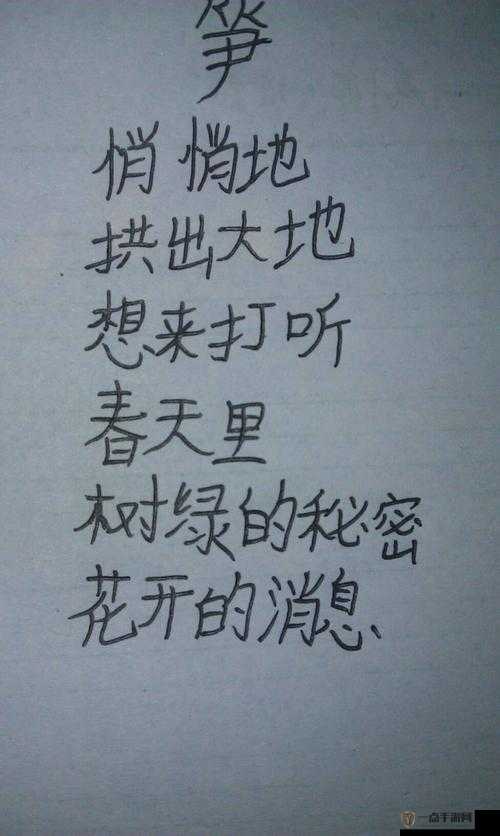 笋
悄悄地
拱出大地
想来打听
春天里
树绿的秘密
花开的消息
一点手游网